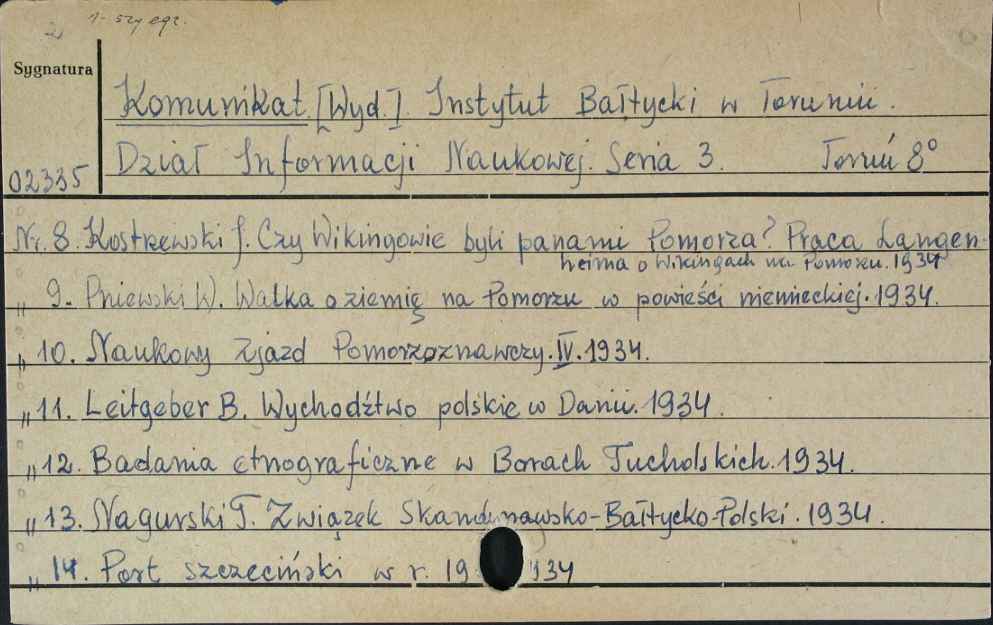 1-szy egz.
Sygnatura
Komunikat [Wyd.]. Instytut Bałtycki w Toruniu.
02335 Dział Informacji Naukowej. Seria 3. Toruń 8°
Nr. 8. Kostrzewski J. Czy Wikingowie byli panami Pomorza? Praca Langen-
heima o Wikingach na Pomorzu. 1934
„ 9. Pniewski W. Walka o ziemię na Pomorzu w powieści niemieckiej. 1934.
„ 10. Naukowy Zjazd Pomorzoznawczy. IV. 1934.
„ 11. Leitgeber B. Wychodźtwo polskie w Danii. 1934.
„ 12. Badania etnograficzne w Borach Tucholskich. 1934.
„ 13. Nagurski T. Związek Skandynawsko-Bałtycko-Polski. 1934.
„ 14. Port szczeciński w r. 19 1934